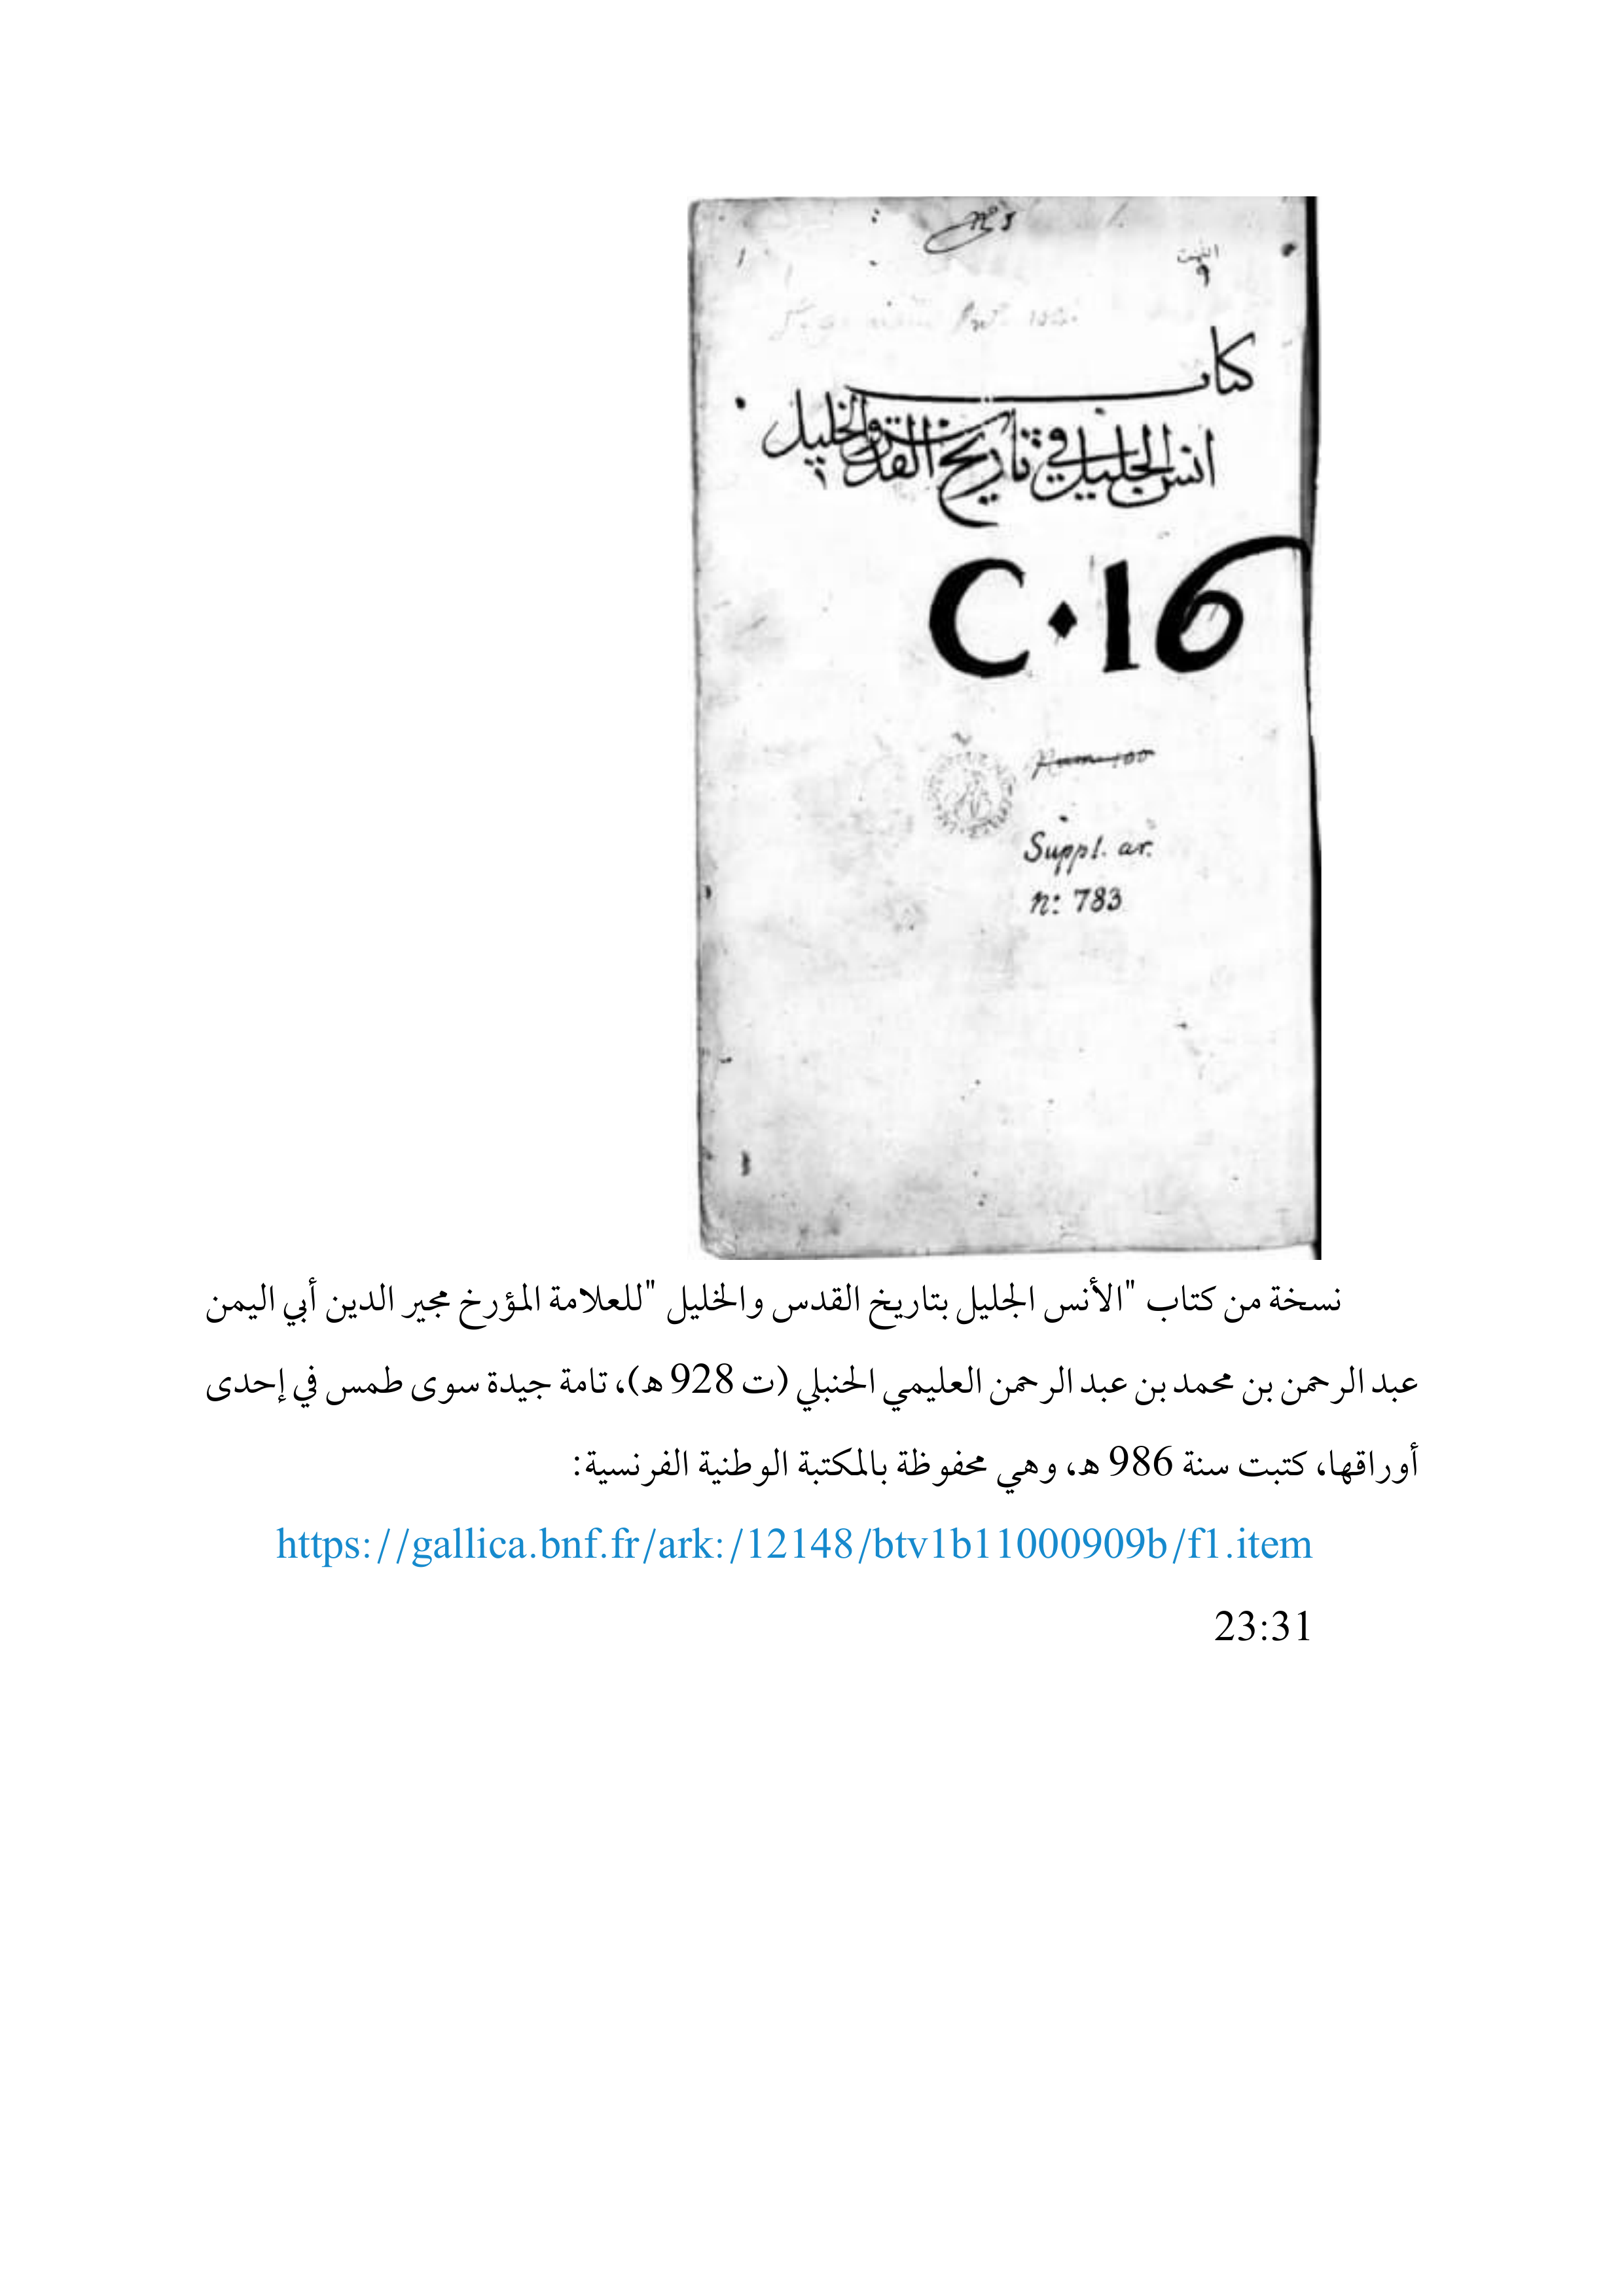 nº 5
٩
كتاب
انس الجليل في تاريخ القدس والخليل
C·16
Suppl. ar.
nº 783
نسخة من كتاب "الأنس الجليل بتاريخ القدس والخليل "للعلامة المؤرخ مجير الدين أبي اليمن
عبد الرحمن بن محمد بن عبد الرحمن العليمي الحنبلي (ت 928 هـ)، تامة جيدة سوى طمس في إحدى
أوراقها، كتبت سنة 986 هـ، وهي محفوظة بالمكتبة الوطنية الفرنسية:
https://gallica.bnf.fr/ark:/12148/btv1b11000909b/f1.item
23:31